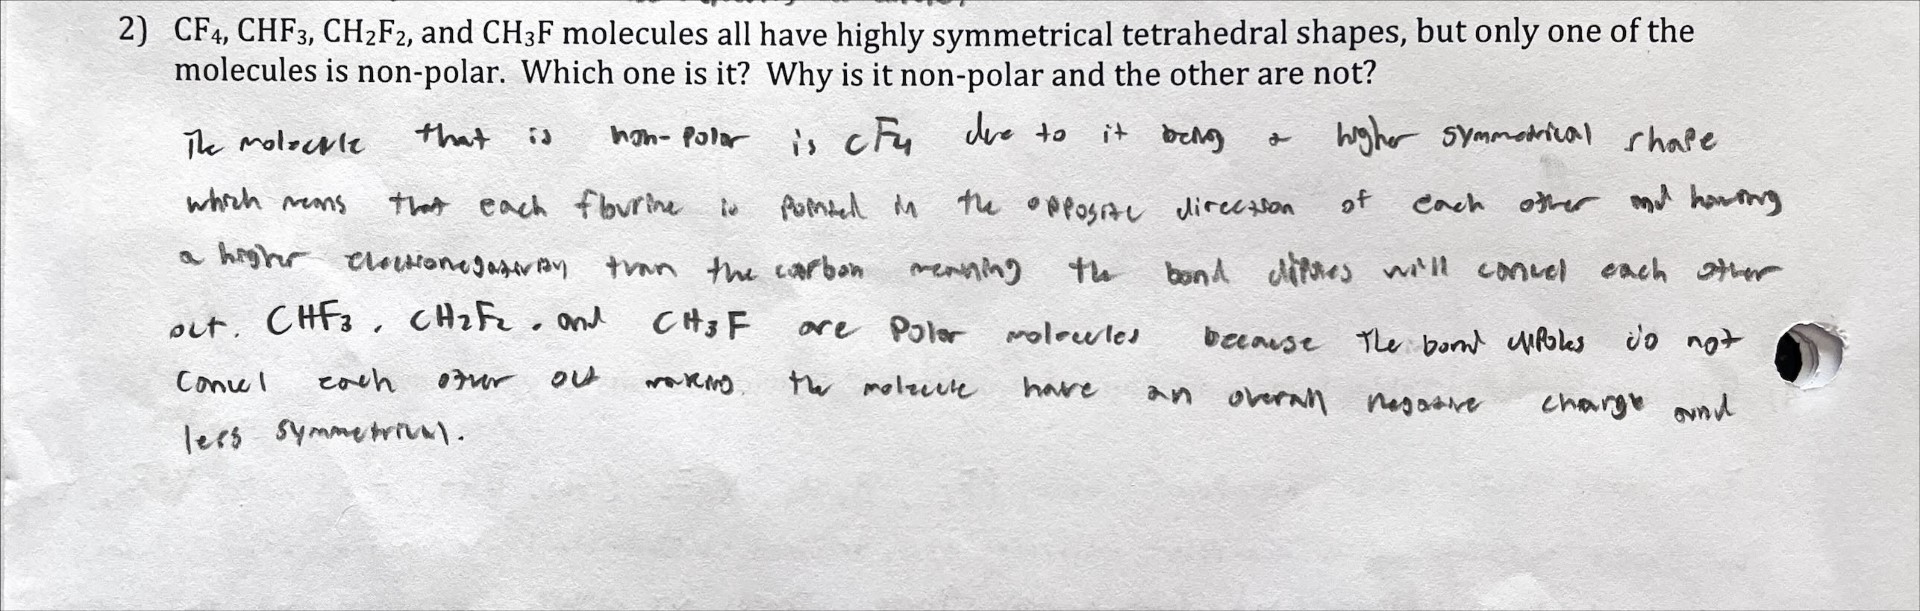 2) CF₄, CHF₃, CH₂F₂, and CH₃F molecules all have highly symmetrical tetrahedral shapes, but only one of the
molecules is non-polar. Which one is it? Why is it non-polar and the other are not?
The molecule that is non-polar is CF4 due to it being a higher symmetrical shape
which means that each flourine is pointed in the opposite direction of each other and having
a higher electronegativity than the carbon meaning the bond dipoles will cancel each other
out. CHF3, CH2F2, and CH3F are polar molecules because the bond dipoles do not
cancel each other out making the molecule have an overall negative charge and
less symmetrical.